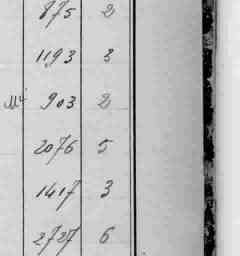 875 2
1193 3
903 2
2076 5
1417 3
2727 6